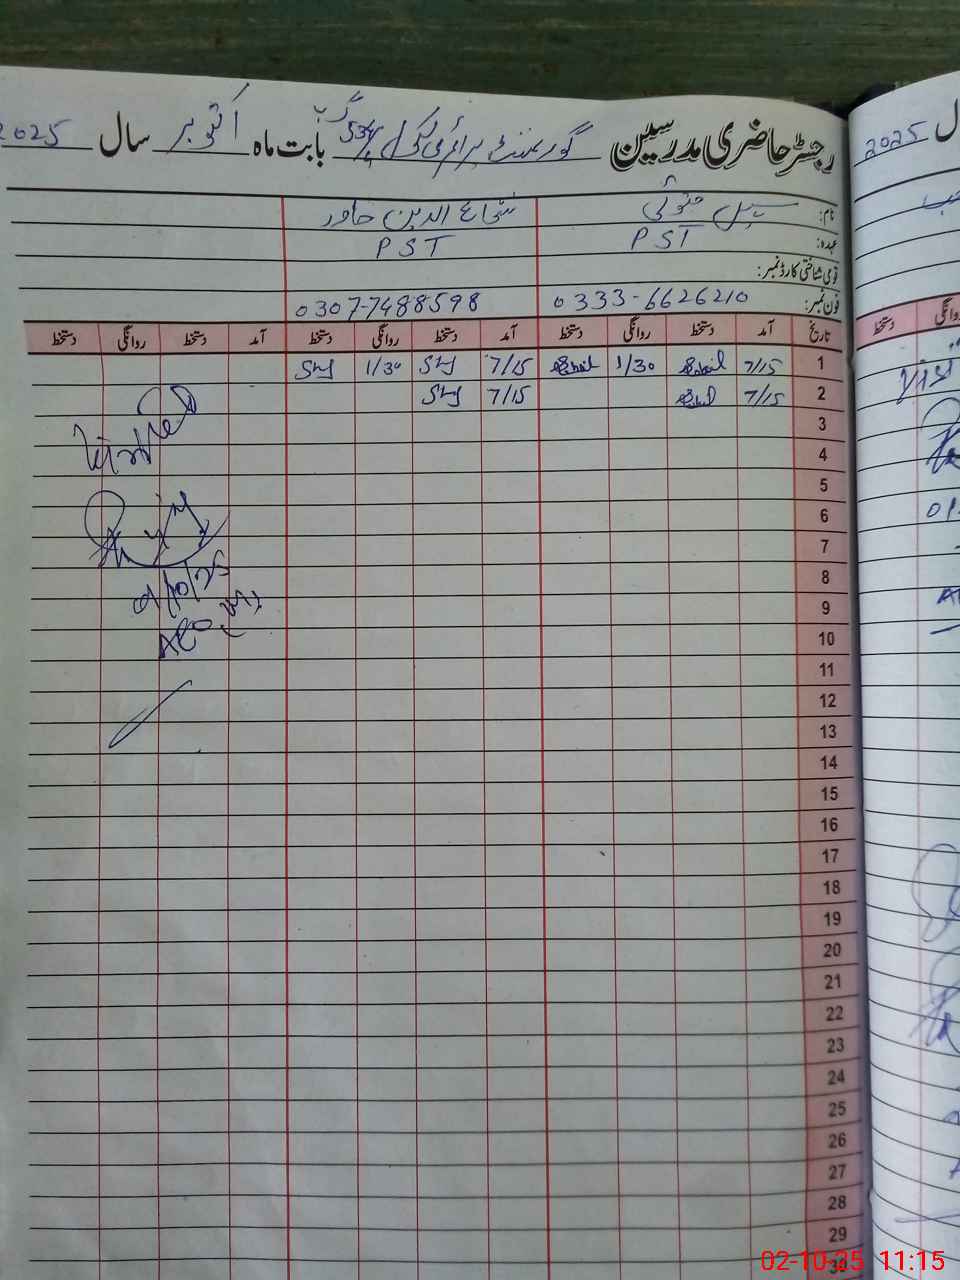 رجسٹر حاضری مدرسین گورنمنٹ پرائمری سکول 534 گ ب بابت ماہ اکتوبر سال 2025
نام: سہیل شعاع الدین خاور
عہدہ: PST PST
قومی شناختی کارڈ نمبر:
فون نمبر: 0333-6626210 0307-7488598
تاریخ آمد دستخط روانگی دستخط آمد دستخط روانگی دستخط آمد دستخط روانگی دستخط
1 7/15 Sohail 1/30 Sohail 7/15 1/30
2 7/15 7/15
3
4
Visited
5
6
7
8
/10/25
9
AEO
10
11
12
13
14
15
16
17
18
19
20
21
22
23
24
25
26
27
28
29
30
2025
دستخط
02-10-25 11:15